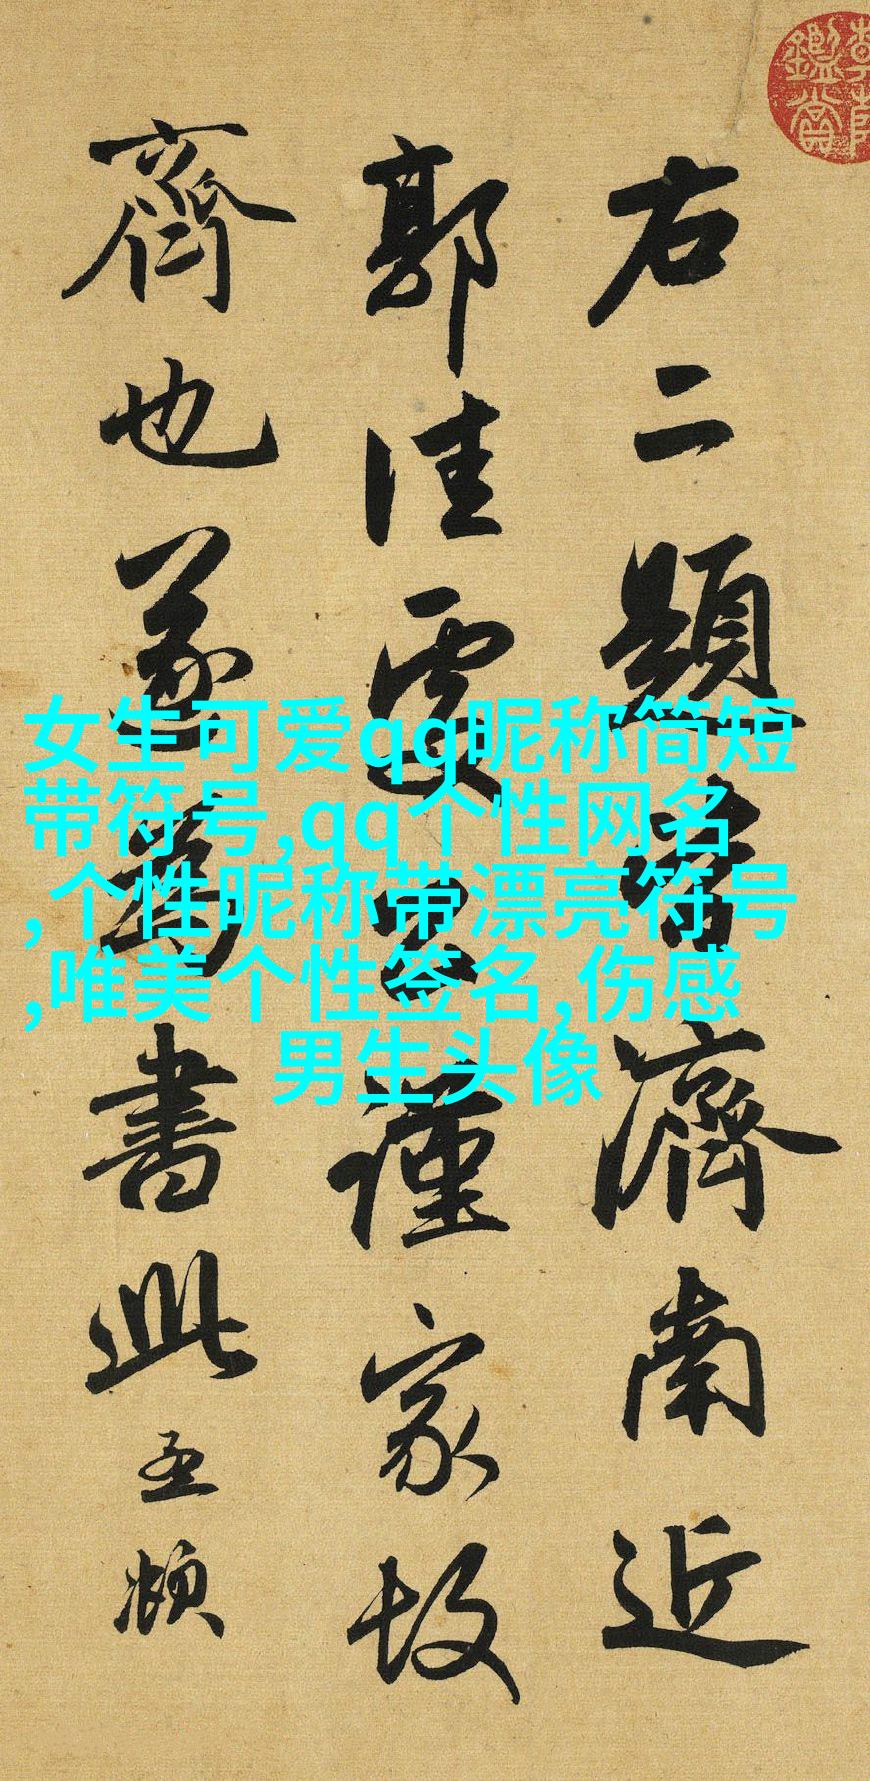 鑑賞
右二題皆濟南近
郭佳處公謹家故
齊也遂為書此孟頫
女生可爱qq昵称简短
带符号,qq个性网名
,个性昵称带漂亮符号
,唯美个性签名,伤感
男生头像